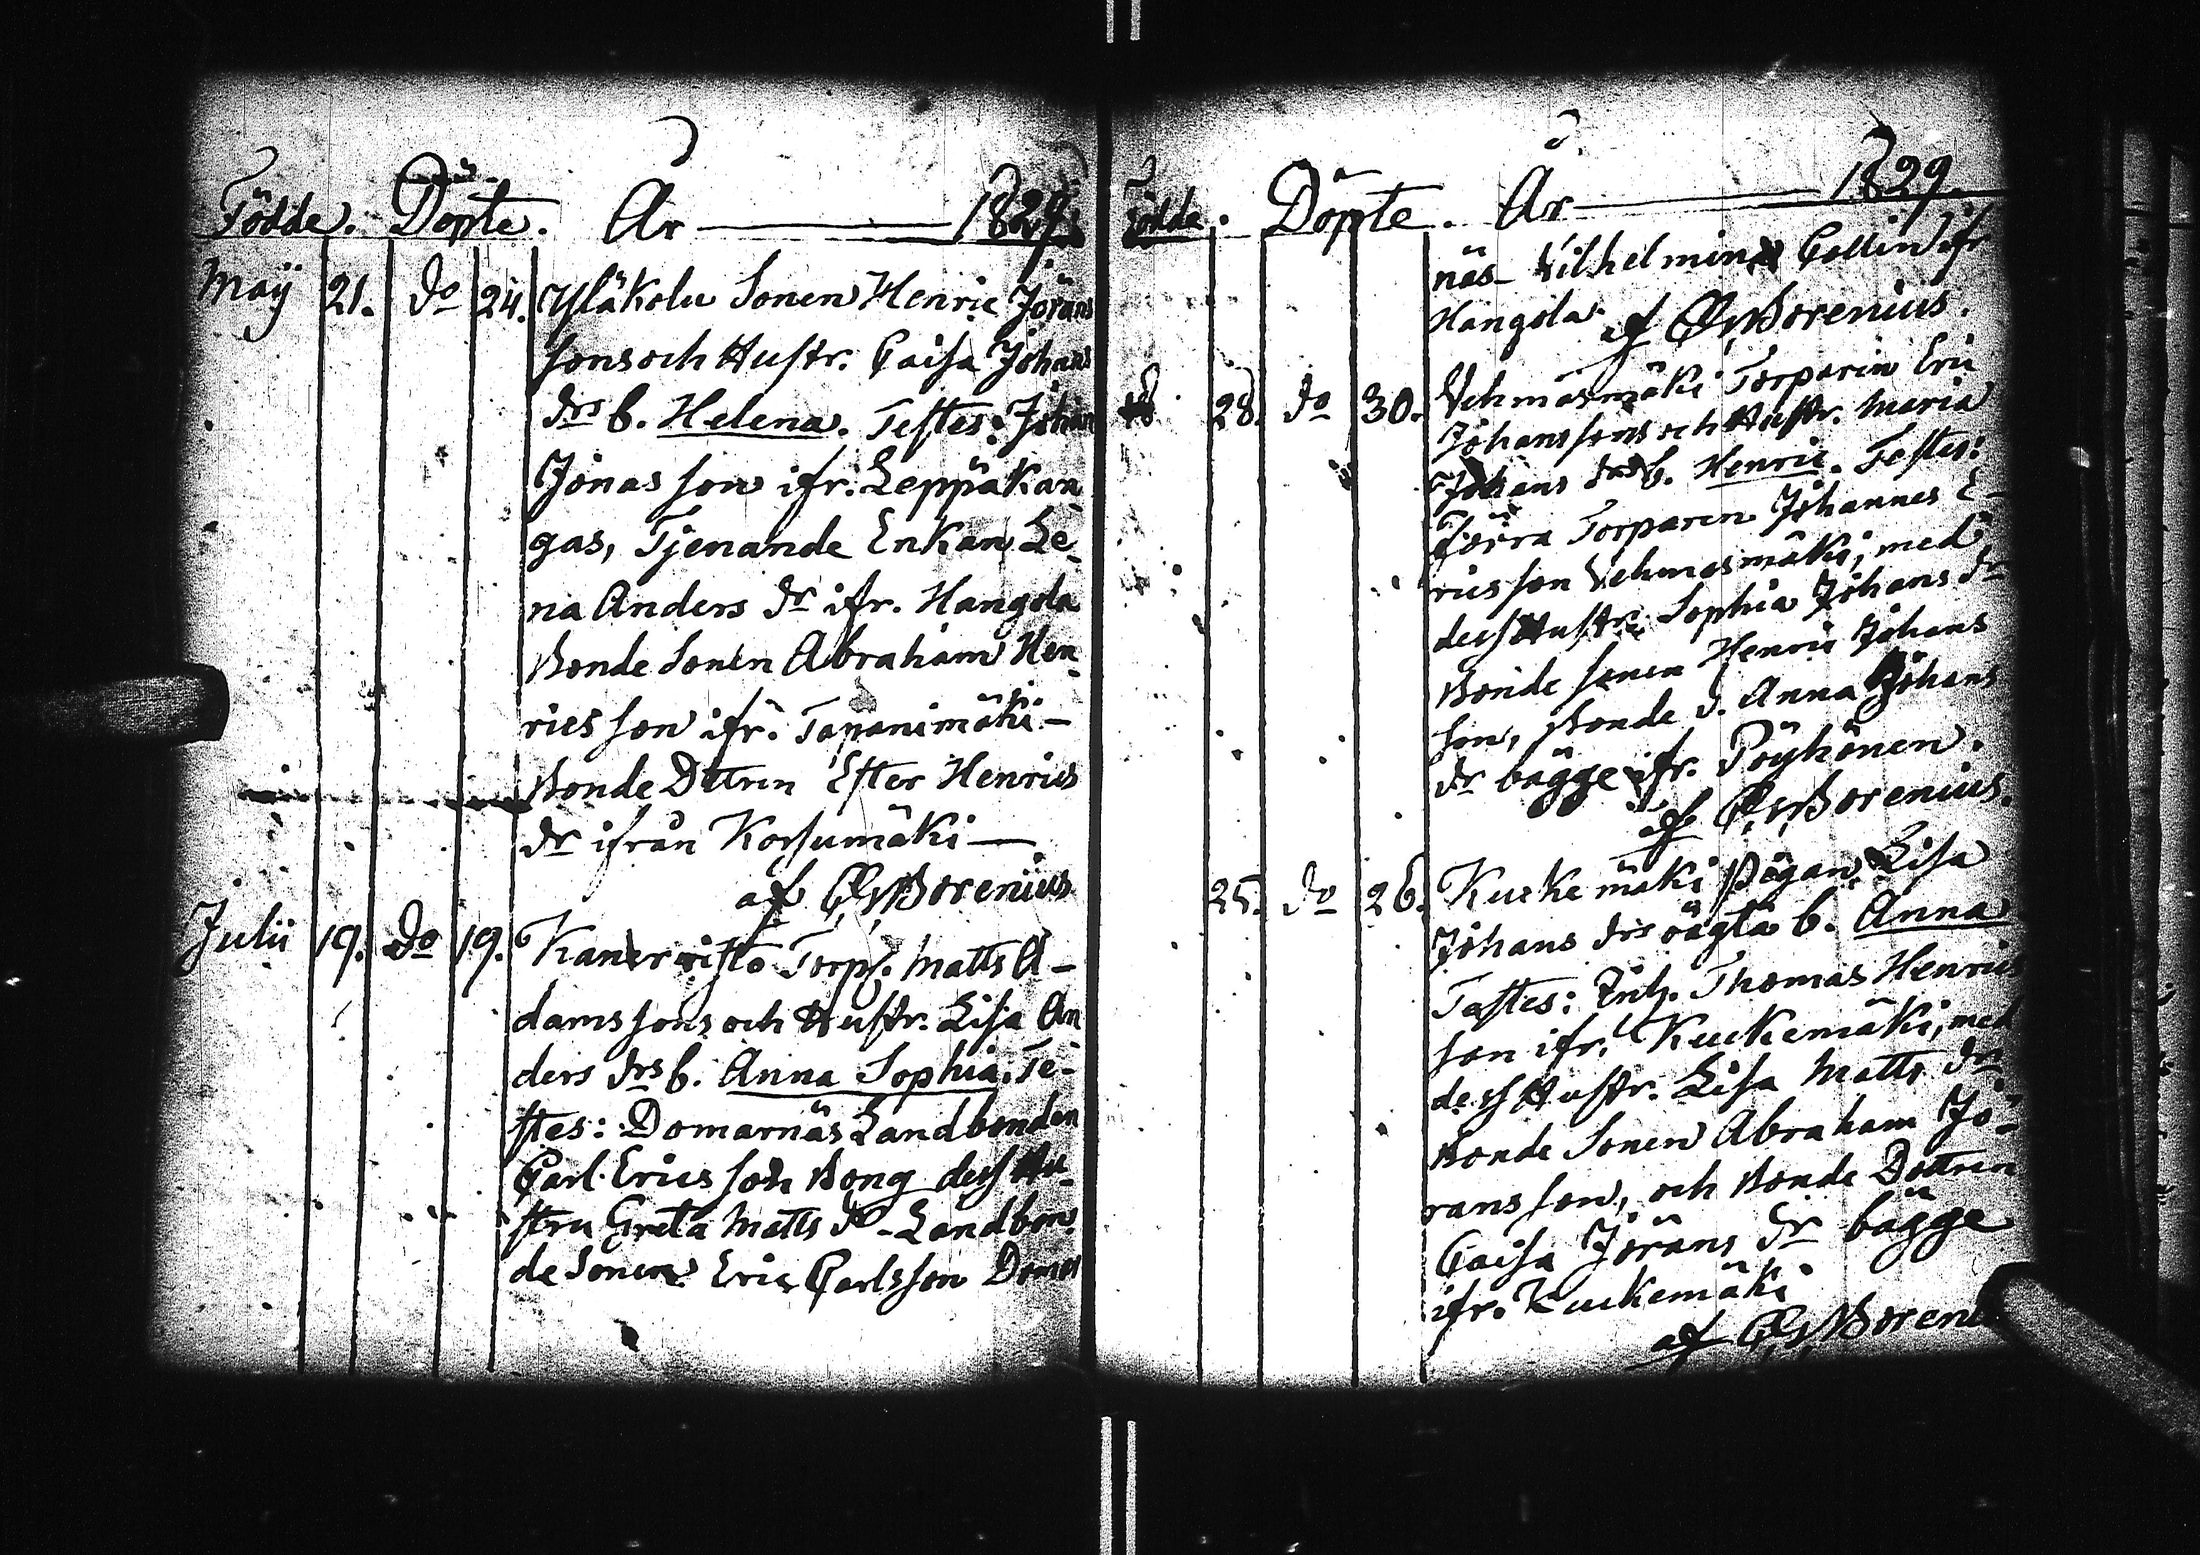 Födde. Döpte. År 1829.
Maÿ 21. do 24. Yläkolu Sonen Henric Jörans
sons och Hustr. Caisa Johans
drs b. Helena. Testes: Johan
Jonas son ifr. Leppäkan
gas, Tjenande Enkan Le-
na Anders dr ifr. Hangola
Bonde Sonen Abraham Hen
rics son ifr. Tapanimäki -
Bonde Dttrn Ester Henrics
dr ifrån Korsumäki -
af Borenius
Julii 19. do 19. Torp. Matts A-
dams sons och Hustr. Lisa An
ders drs b. Anna Sophia. Te-
stes: Domarnäs Landbonden
Carl Erics son Bong dess Hu-
stru Greta Matts dr - Landbon-
de Sonen Eric Carlsson Domar
Födde. Döpte. År 1829.
näs - Vilhelmina Collin ifr
Hangola. af Borenius.
28. do 30. Vehmasmäki Torparen Eric
Johans sons och Hustr. Maria
Johans drs b. Henric. Testes:
Förra Torparen Johannes E-
rics son Vehmasmäki, med
dess Hustru Sophia Johans dr
Bonde sonen Henric Johans
son, Bonde d. Anna Johans
dr bägge ifr. Pöyhönen.
af Borenius.
25. do 26. Kuckemäki Pigan Lisa
Johans drs oägta b. Anna
Testes: Inh. Thomas Henrics
son ifr. Kuckemäki, med
dess Hustr. Lisa Matts dr
Bonde Sonen Abraham Jö-
rans son, och Bonde Dottren
Caisa Jörans dr bägge
ifr. Kuckemäki
af Boreni